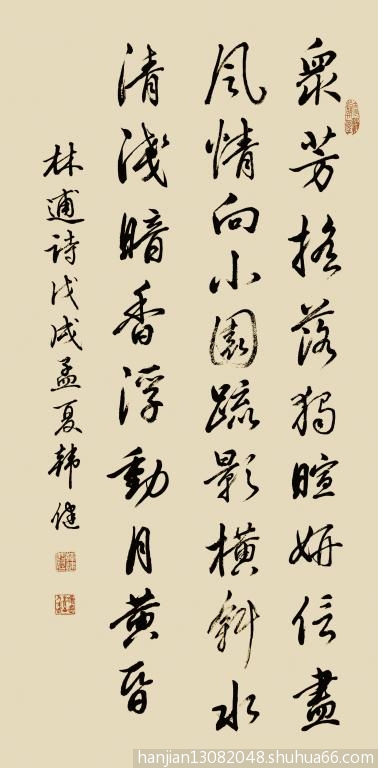 衆芳摇落獨暄妍佔盡
風情向小園疏影橫斜水
清淺暗香浮動月黃昏
林逋诗戊戌孟夏韩健
hanjian13082048.shuhua66.com